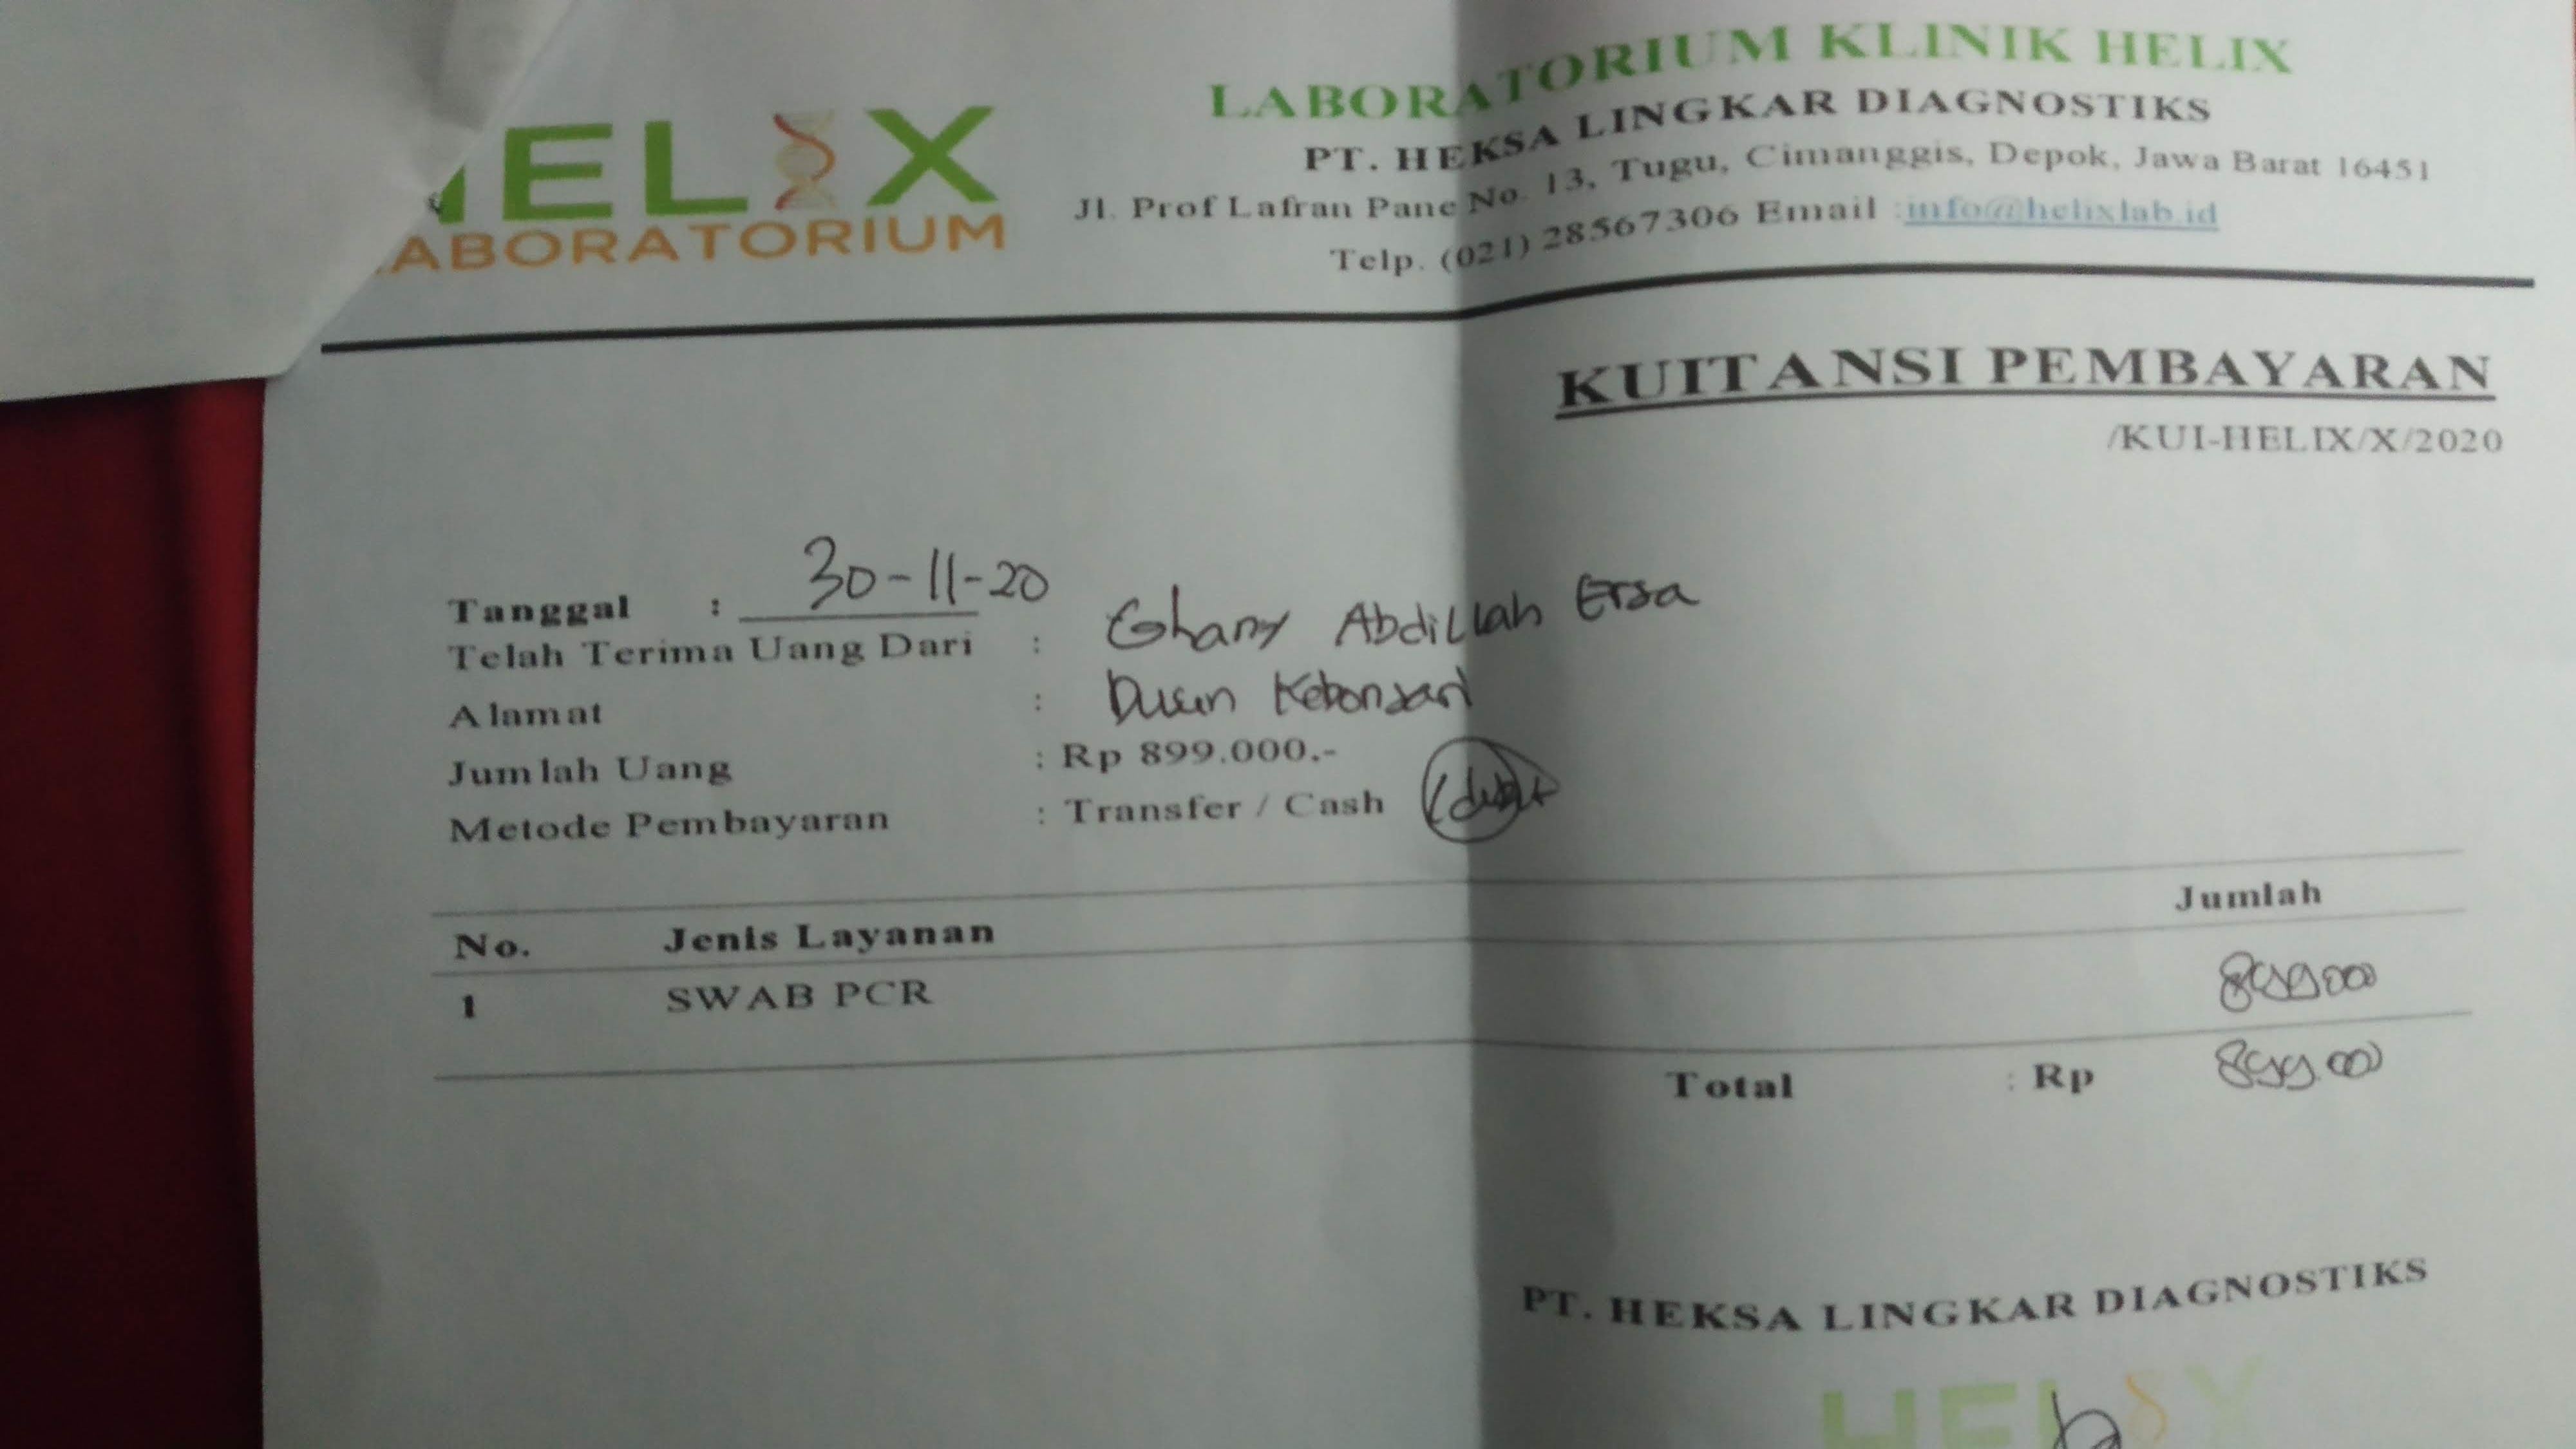 HELIX
LABORATORIUM
LABORATORIUM KLINIK HELIX
PT. HEKSA LINGKAR DIAGNOSTIKS
Jl. Prof Lafran Pane No. 13, Tugu, Cimanggis, Depok, Jawa Barat 16451
Telp. (021) 28567306 Email :info@helixlab.id
KUITANSI PEMBAYARAN
/KUI-HELIX/X/2020
Tanggal : 30-11-20
Telah Terima Uang Dari : Ghany Abdillah Ersa
Alamat : Dusun Kebonsari
Jumlah Uang : Rp 899.000.-
Metode Pembayaran : Transfer / Cash / debit
No. Jenis Layanan Jumlah
1 SWAB PCR 899000
Total : Rp 899.000
PT. HEKSA LINGKAR DIAGNOSTIKS
HELIX